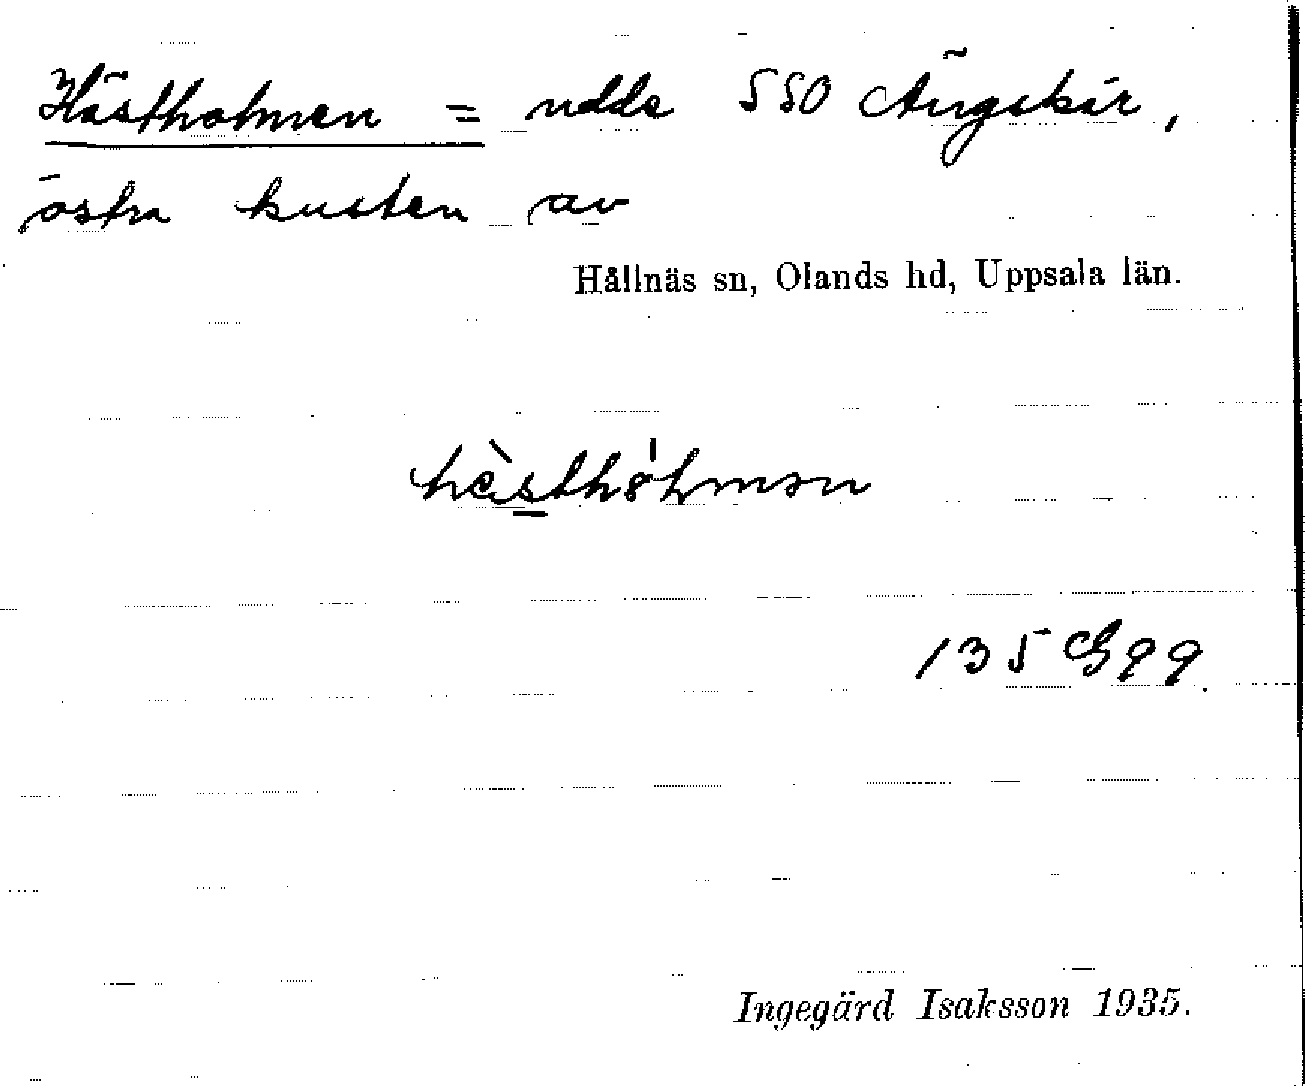 Hästholmen = udde SSO Ängskär,
östra kusten av
Hållnäs sn, Olands hd, Uppsala län.
hὲsthɵ̀lmən
135 G 99
Ingegärd Isaksson 1935.